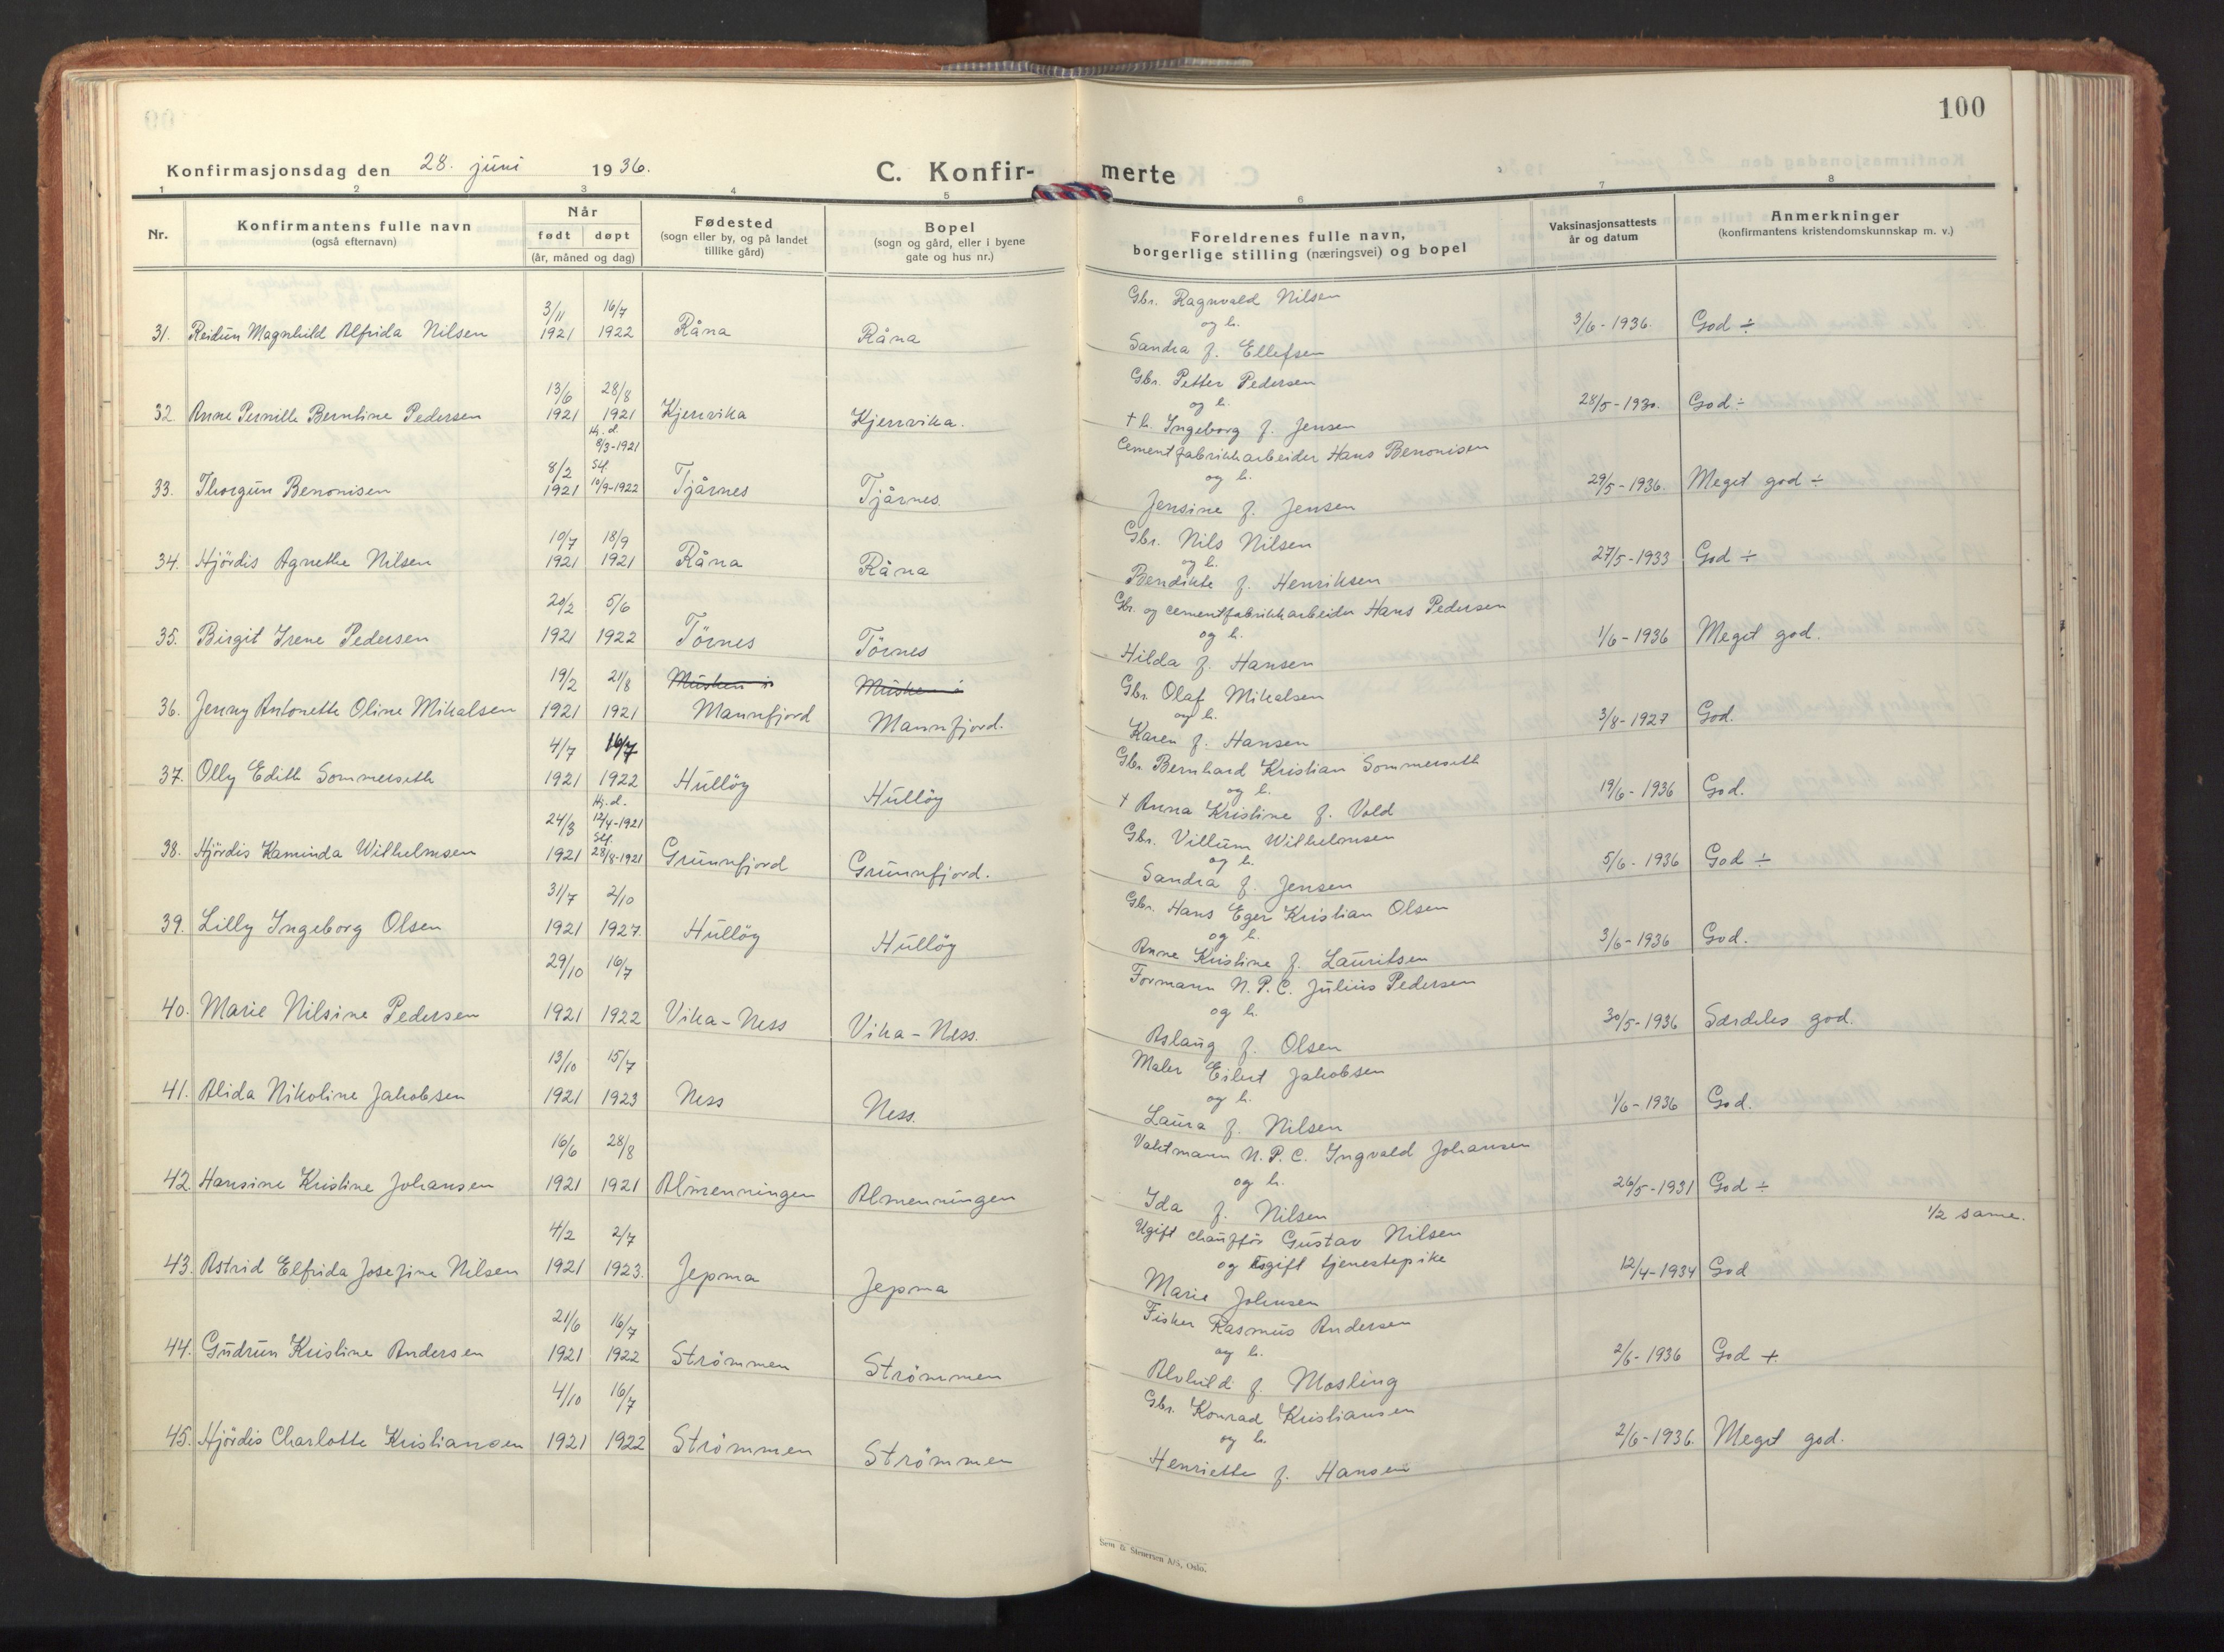 100
Konfirmasjonsdag den 28. juni 1936. C. Konfir- merte
1 2 3 4 5 6 7 8
Nr.
Konfirmantens fulle navn
(også efternavn)
Når
født døpt
(år, måned og dag)
Fødested
(sogn eller by, og på landet
tillike gård)
Bopel
(sogn og gård, eller i byene
gate og hus nr.)
Foreldrenes fulle navn,
borgerlige stilling (næringsvei) og bopel
Vaksinasjonsattests
år og datum
Anmerkninger
(konfirmantens kristendomskunnskap m. v.)
31. Reidun Magnhild Alfrida Nilsen 3/11 1921 16/7 1922 Råna Råna
Gbr. Ragnvald Nilsen
og h.
Sandra f. Ellefsen
3/6-1936. God ÷
32. Anne Pernille Berntine Pedersen 13/6 1921 28/8 1921 Kjerrvika Kjerrvika.
Gbr. Petter Pedersen
og h.
† h. Ingeborg f. Jensen
28/5-1930. God ÷
33. Thorgun Benonisen 8/2 1921 Hj. d. 8/3-1921 Stf. 10/9-1922 Tjårnes Tjårnes.
Cementfabrikkarbeider Hans Benonisen
og h.
Jensine f. Jensen
29/5-1936. Meget god ÷
34. Hjördis Agnethe Nilsen 10/7 1921 18/9 1921 Råna Råna
Gbr. Nils Nilsen
og h.
Bendikte f. Henriksen
27/5-1933 God ÷
35. Birgit Irene Pedersen 20/2 1921 5/6 1922 Törnes Törnes
Gbr. og cementfabrikkarbeider Hans Pedersen
og h.
Hilda f. Hansen
1/6-1936 Meget god.
36. Jenny Antonette Oline Mikalsen 19/2 1921 21/8 1921 Musken i Mannfjord Musken i Mannfjord.
Gbr. Olaf Mikalsen
og h.
Karen f. Hansen
3/8-1927 God.
37. Olly Edith Sommerseth 4/7 1921 16/7 1922 Hullöy Hullöy
Gbr. Bernhard Kristian Sommerseth
og h.
† Anna Kristine f. Vold
19/6-1936 God.
38. Hjördis Kaminda Wilhelmsen 24/3 1921 Hj. d. 12/4-1921 Stf. 28/8-1921 Grunnfjord Grunnfjord.
Gbr. Villum Wilhelmsen
og h.
Sandra f. Jensen
5/6-1936 God ÷
39. Lilly Ingeborg Olsen 31/7 1921 2/10 1927. Hullöy Hullöy
Gbr. Hans Eger Kristian Olsen
og h.
Anne Kristine f. Lauritsen
3/6-1936 God.
40. Marie Nilsine Pedersen 29/10 1921 16/7 1922 Vika-Ness Vika-Ness.
Formann N.P.C. Julius Pedersen
og h.
Aslaug f. Olsen
30/5-1936 Særdeles god.
41. Alida Nikoline Jakobsen 13/10 1921 15/7 1923 Ness Ness.
Maler Eilert Jakobsen
og h.
Laura f. Nilsen
1/6-1936 God.
42. Hansine Kristine Johansen 16/6 1921 28/8 1921 Almenningen Almenningen
Vaktmann N.P.C. Ingvald Johansen
og h.
Ida f. Nilsen
26/5-1931 God ÷
1/2 same.
43. Astrid Elfrida Josefine Nilsen 4/2 1921 2/7 1923. Jepma Jepma
Ugift chaufför Gustav Nilsen
og ugift tjenestepike
Marie Johnsen
12/4-1934 God
44. Gudrun Kristine Andersen 21/6 1921 16/7 1922 Strömmen Strömmen
Fisker Rasmus Andersen
og h.
Alvhild f. Mosling
2/6-1936 God +.
45. Hjördis Charlotte Kristiansen 4/10 1921 16/7 1922 Strömmen Strömmen
Gbr. Konrad Kristiansen
og h.
Henriette f. Hansen
2/6-1936. Meget god.
Sem & Stenersen A/S, Oslo.